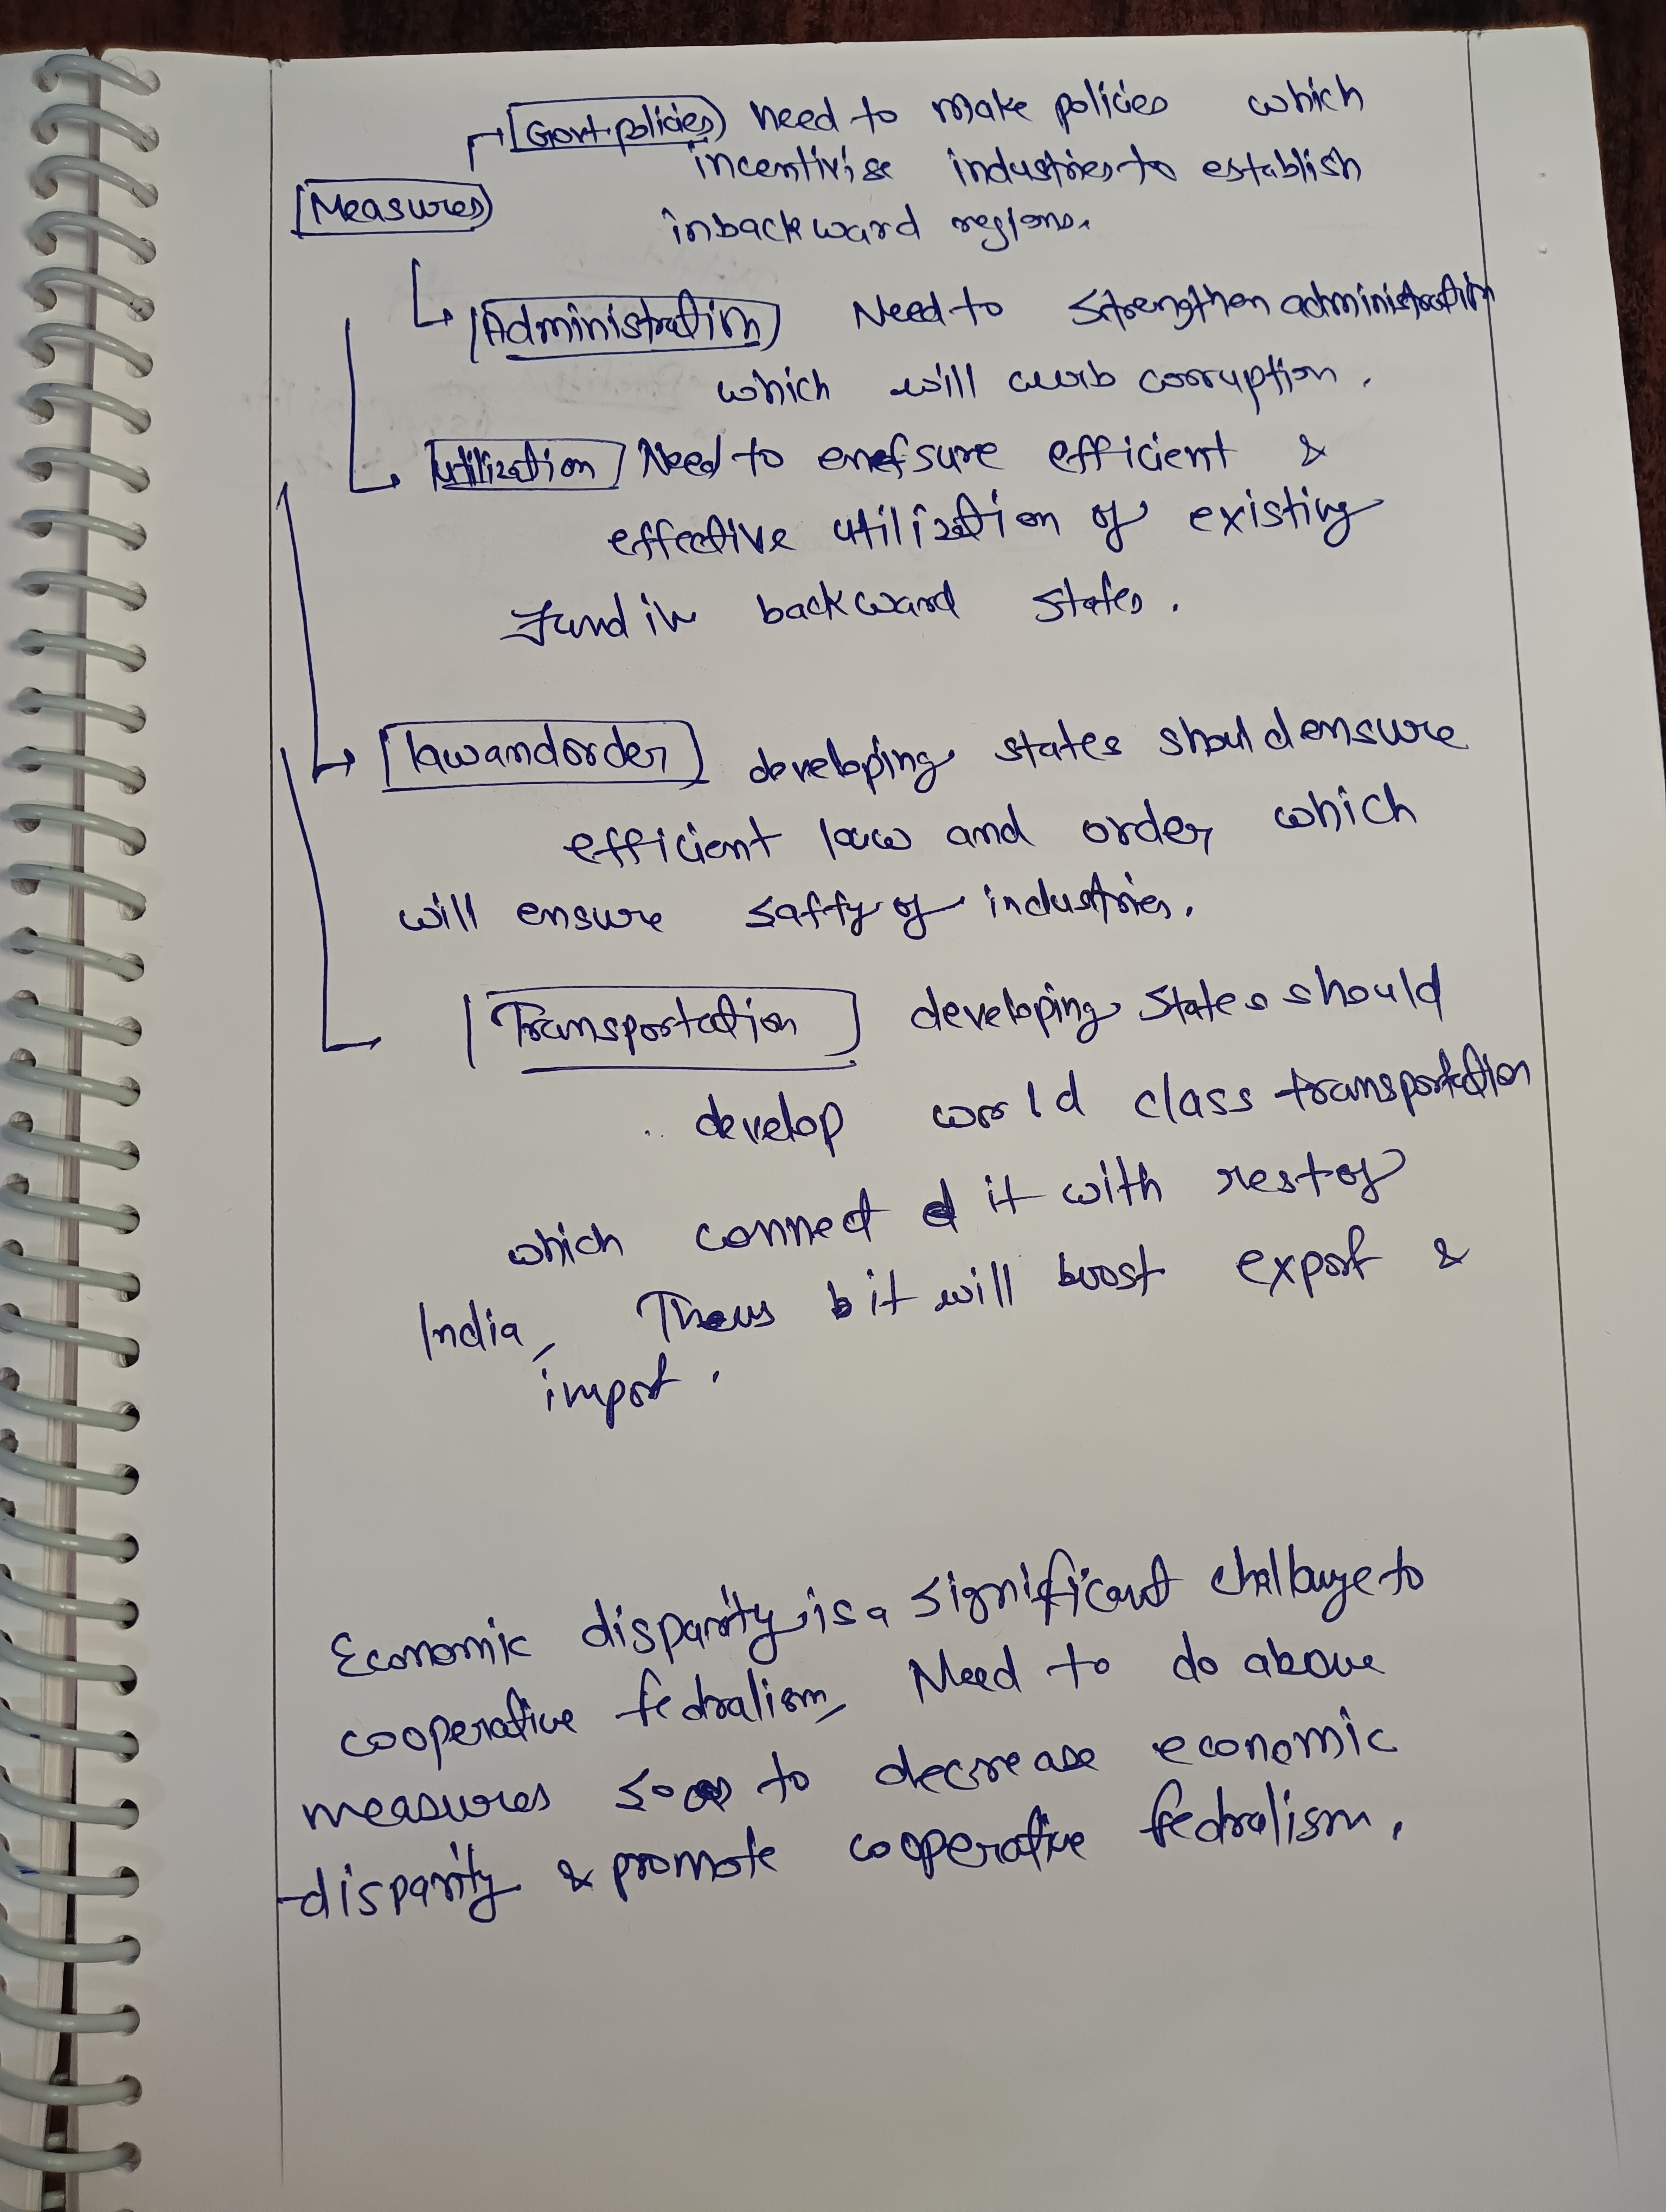 Govt. policies need to make policies which
incentivise industries to establish
Measures
in backward regions.
Administration Need to strengthen administration
which will curb corruption.
utilization Need to ensure efficient &
effective utilization of existing
Fund in backward states.
law and order developing states should ensure
efficient law and order which
will ensure safty of industries.
Transportation developing states should
develop world class transportation
which connect it with rest of
India, Thus it will boost export &
import.
Economic disparity is a significant challange to
cooperative fedralism, Need to do above
measures so as to decrease economic
disparity & promote cooperative fedralism.